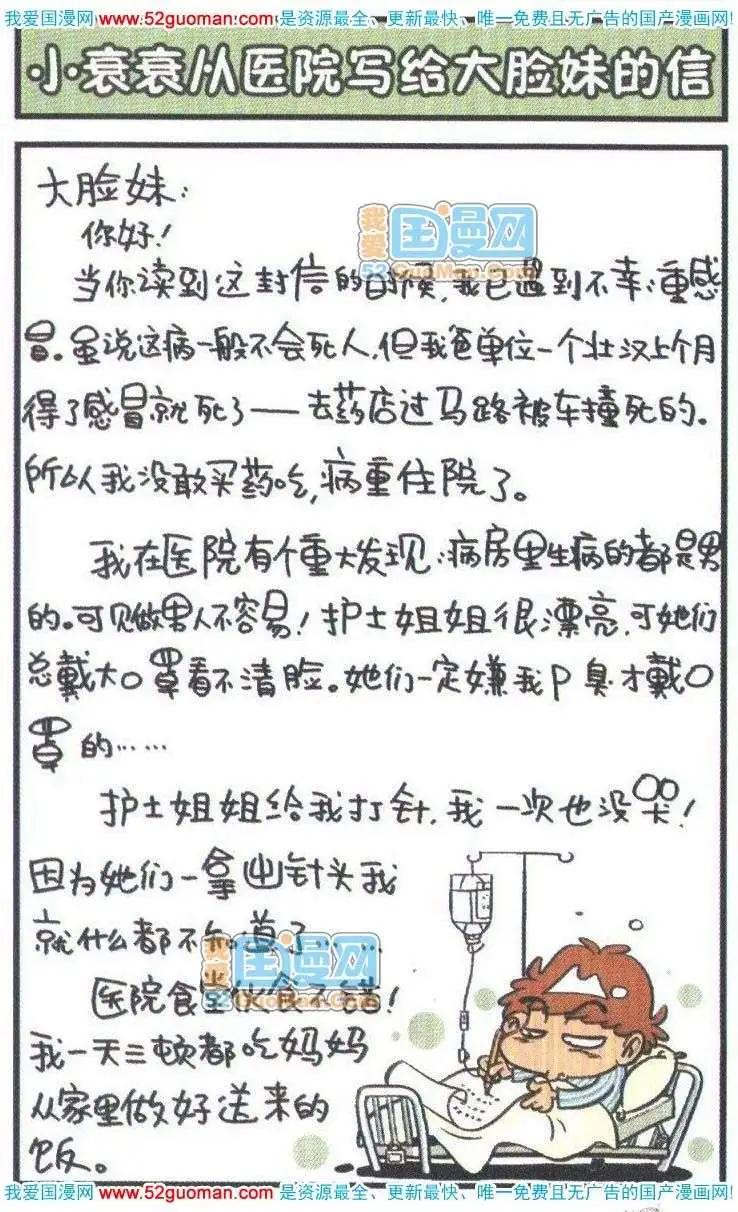 我爱国漫网 www.52guoman.com 是资源最全、更新最快、唯一免费且无广告的国产漫画网!
小衰衰从医院写给大脸妹的信
大脸妹:
我爱国漫网
52GuoMan.Com
你好!
当你读到这封信的时候,我已遇到不幸:重感
冒。虽说这病一般不会死人,但我爸单位一个壮汉上个月
得了感冒就死了——去药店过马路被车撞死的。
所以我没敢买药吃,病重住院了。
我在医院有个重大发现:病房里生病的都是男
的。可见做男人不容易!护士姐姐很漂亮,可她们
总戴大口罩看不清脸。她们一定嫌我P臭才戴口
罩的……
护士姐姐给我打针,我一次也没哭!
因为她们一拿出针头我
就什么都不知道了……
国漫网
医院食堂伙食不错!
我一天三顿都吃妈妈
从家里做好送来的
饭。
我爱国漫网 www.52guoman.com 是资源最全、更新最快、唯一免费且无广告的国产漫画网!